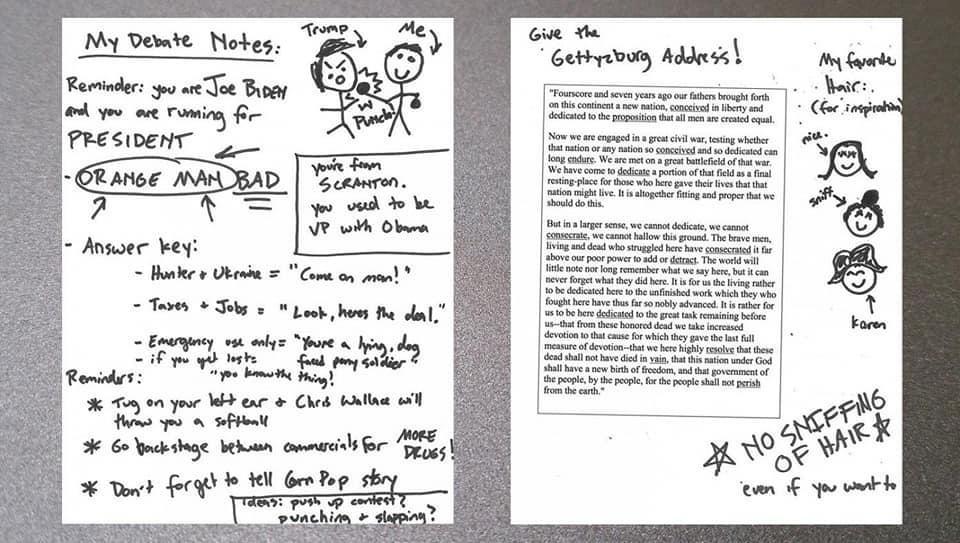 My Debate Notes:
Trump
Me
Reminder: you are Joe BIDEN
and you are running for
PRESIDENT
Punch!
- ORANGE MAN BAD
you're from
SCRANTON.
you used to be
VP with Obama
- Answer key:
- Hunter + Ukraine = "Come on man!"
- Taxes + Jobs = "Look, heres the deal."
- Emergency use only = "You're a lying, dog
faced pony soldier"
- if you get lost =
"you know the thing!
Reminders:
* Tug on your left ear & Chris Wallace will
throw you a softball
* Go backstage between commercials for MORE
DRUGS!
* Don't forget to tell Corn Pop story
ideas: push up contest?
punching + slapping?
Give the
Gettyzburg Address!
"Fourscore and seven years ago our fathers brought forth
on this continent a new nation, conceived in liberty and
dedicated to the proposition that all men are created equal.
Now we are engaged in a great civil war, testing whether
that nation or any nation so conceived and so dedicated can
long endure. We are met on a great battlefield of that war.
We have come to dedicate a portion of that field as a final
resting-place for those who here gave their lives that that
nation might live. It is altogether fitting and proper that we
should do this.
But in a larger sense, we cannot dedicate, we cannot
consecrate, we cannot hallow this ground. The brave men,
living and dead who struggled here have consecrated it far
above our poor power to add or detract. The world will
little note nor long remember what we say here, but it can
never forget what they did here. It is for us the living rather
to be dedicated here to the unfinished work which they who
fought here have thus far so nobly advanced. It is rather for
us to be here dedicated to the great task remaining before
us--that from these honored dead we take increased
devotion to that cause for which they gave the last full
measure of devotion--that we here highly resolve that these
dead shall not have died in vain, that this nation under God
shall have a new birth of freedom, and that government of
the people, by the people, for the people shall not perish
from the earth."
My favorite
Hair:
(for inspiration)
nice.
sniff
Karen
NO SNIFFING
OF HAIR
even if you want to